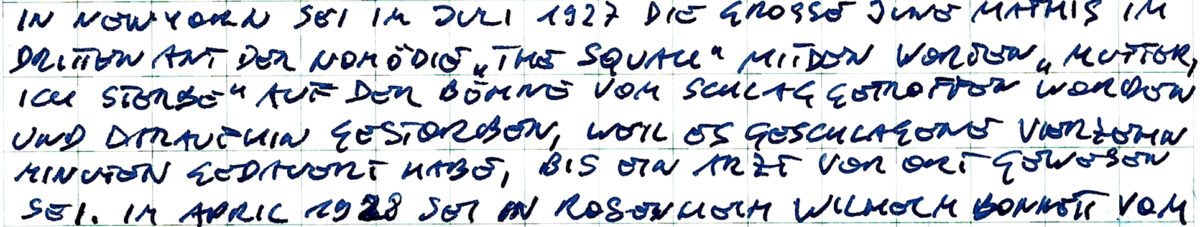 IN NEW YORK SEI IM JULI 1927 DIE GROSSE JUNE MATHIS IM
DRITTEN AKT DER KOMÖDIE „THE SQUALL“ MIT DEN WORTEN „MUTTER,
ICH STERBE“ AUF DER BÜHNE VOM SCHLAG GETROFFEN WORDEN
UND DARAUFHIN GESTORBEN, WEIL ES GESCHLAGENE VIERZEHN
MINUTEN GEDAUERT HABE, BIS EIN ARZT VOR ORT GEWESEN
SEI. IM APRIL 1928 SEI IN ROSENHEIM WILHELM BONNETT VOM